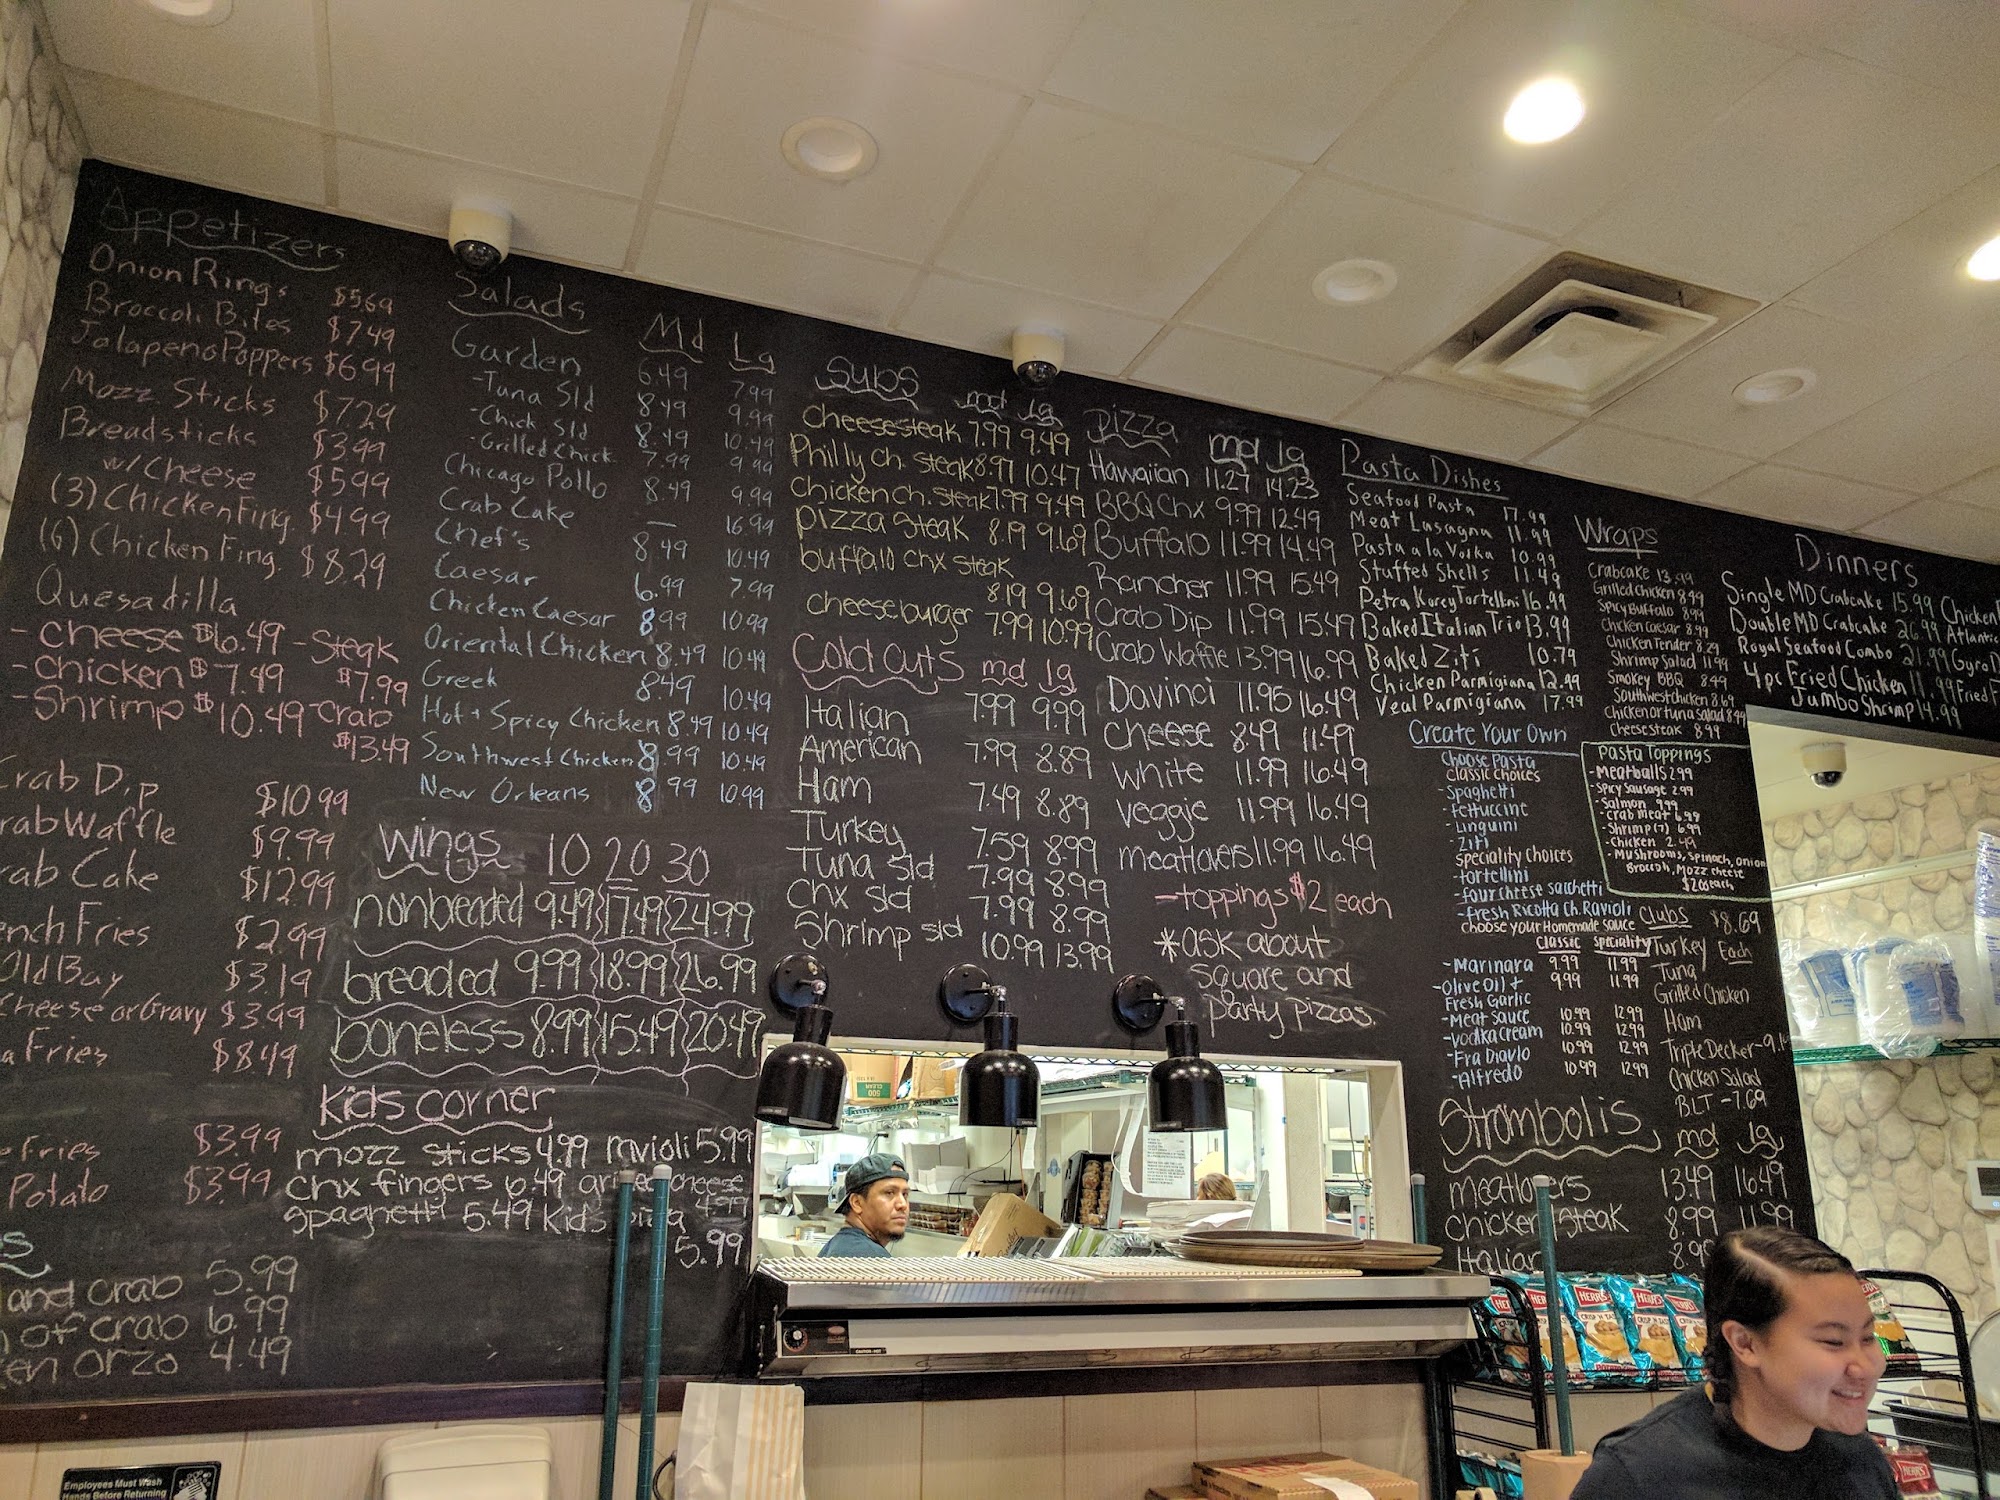 Appetizers
Onion Rings $5.69
Broccoli Bites $7.49
Jalapeno Poppers $6.99
Mozz Sticks $7.29
Breadsticks $3.99
w/ Cheese $5.99
(3) Chicken Fing. $4.99
(6) Chicken Fing. $8.29
Quesadilla
- cheese $6.49 - Steak
- chicken $7.49 $7.99
- Shrimp $10.49 - Crab
$13.49
Crab Dip $10.99
Crab Waffle $9.99
Crab Cake $12.99
ench Fries $2.99
Old Bay $3.19
Cheese or Gravy $3.99
a Fries $8.49
Fries $3.99
Potato $3.99
and crab 5.99
of crab 6.99
en orzo 4.49
Salads Md Lg
Garden 6.49 7.99
- Tuna Sld 8.49 9.99
- Chick Sld 8.49 10.49
- Grilled Chick 7.99 9.99
Chicago Pollo 8.49 9.99
Crab Cake — 16.99
Chef's 8.49 10.49
Caesar 6.99 7.99
Chicken Caesar 8.99 10.99
Oriental Chicken 8.49 10.49
Greek 8.49 10.49
Hot + Spicy Chicken 8.49 10.49
Southwest Chicken 8.99 10.49
New Orleans 8.99 10.99
wings 10 20 30
nonbreaded 9.49 17.49 24.99
breaded 9.99 18.99 26.99
boneless 8.99 15.49 20.49
Kids corner
mozz sticks 4.99 ravioli 5.99
chx fingers 6.49 grilled cheese
4.99
spaghetti 5.49 kids pizza
5.99
SUBS md lg
cheesesteak 7.99 9.49
Philly ch. steak 8.97 10.47
chicken ch. steak 7.99 9.49
pizza steak 8.19 9.69
buffalo chx steak
8.19 9.69
cheeseburger 7.99 10.99
Cold cuts md lg
Italian 7.99 9.99
American 7.99 8.89
Ham 7.49 8.89
Turkey 7.59 8.99
Tuna sld 7.99 8.99
chx sld 7.99 8.99
Shrimp sld 10.99 13.99
pizza md lg
Hawaiian 11.27 14.23
BBQ Chx 9.99 12.49
Buffalo 11.99 14.49
Rancher 11.99 15.49
Crab Dip 11.99 15.49
Crab Waffle 13.99 16.99
Davinci 11.95 16.49
cheese 8.49 11.49
white 11.99 16.49
veggie 11.99 16.49
meatlovers 11.99 16.49
- toppings $2 each
*ask about
square and
party pizzas.
Pasta Dishes
Seafood Pasta 17.99
Meat Lasagna 11.99
Pasta a la Vodka 10.99
Stuffed Shells 11.49
Petra Korey Tortellini 16.99
Baked Italian Trio 13.99
Baked Ziti 10.79
Chicken Parmigiana 12.99
Veal Parmigiana 17.99
Create Your Own
Choose Pasta
classic choices
- Spaghetti
- fettuccine
- Linguini
- Ziti
Speciality Choices
- tortellini
- four cheese sacchetti
- Fresh Ricotta Ch. Ravioli
choose your Homemade Sauce
classic speciality
- Marinara 9.99 11.99
- Olive Oil + 9.99 11.99
Fresh Garlic
- Meat Sauce 10.99 12.99
- Vodka cream 10.99 12.99
- Fra Diavlo 10.99 12.99
- Alfredo 10.99 12.99
Strombolis md lg
meatlovers 13.49 16.49
chicken steak 8.99 11.99
Italian 8.99
Wraps
Crabcake 13.99
Grilled Chicken 8.49
Spicy Buffalo 8.99
Chicken Caesar 8.99
Chicken Tender 8.29
Shrimp Salad 11.99
Smokey BBQ 8.49
Southwest Chicken 8.69
Chicken or Tuna Salad 8.49
Cheesesteak 8.99
Pasta Toppings
- Meatballs 2.99
- Spicy Sausage 2.99
- Salmon 9.99
- Crab meat 6.99
- Shrimp (7) 6.99
- Chicken 2.49
- Mushrooms, Spinach, onion
Broccoli, Mozz cheese
$2.00 each
Clubs $8.69
Each
Turkey
Tuna
Grilled Chicken
Ham
Triple Decker - 9.
Chicken Salad
BLT - 7.69
Dinners
Single MD Crabcake 15.99 Chicken
Double MD Crabcake 26.99 Atlantic
Royal Seafood Combo 21.99 Gyro
4 pc Fried Chicken 11.99 Fried
Jumbo Shrimp 14.99
Employees Must Wash
Hands Before Returning
HERR'S
HERR'S
HERR'S
HERR'S
CRISP 'N TASTY